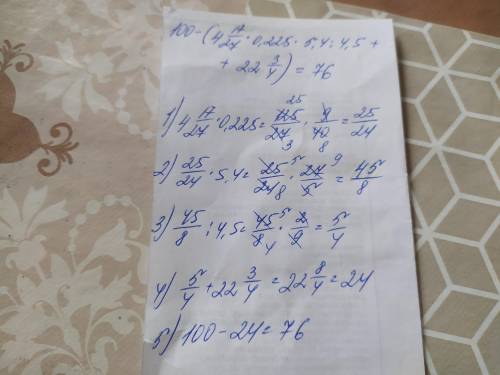 100-(4 17/27 · 0,225 · 5,4 : 4,5 +
+ 22 3/4) = 76
1) 4 17/27 · 0,225 = 125/27 · 9/40 = 25/24
2) 25/24 · 5,4 = 25/24 · 27/5 = 45/8
3) 45/8 : 4,5 = 45/8 · 2/9 = 5/4
4) 5/4 + 22 3/4 = 22 8/4 = 24
5) 100 - 24 = 76